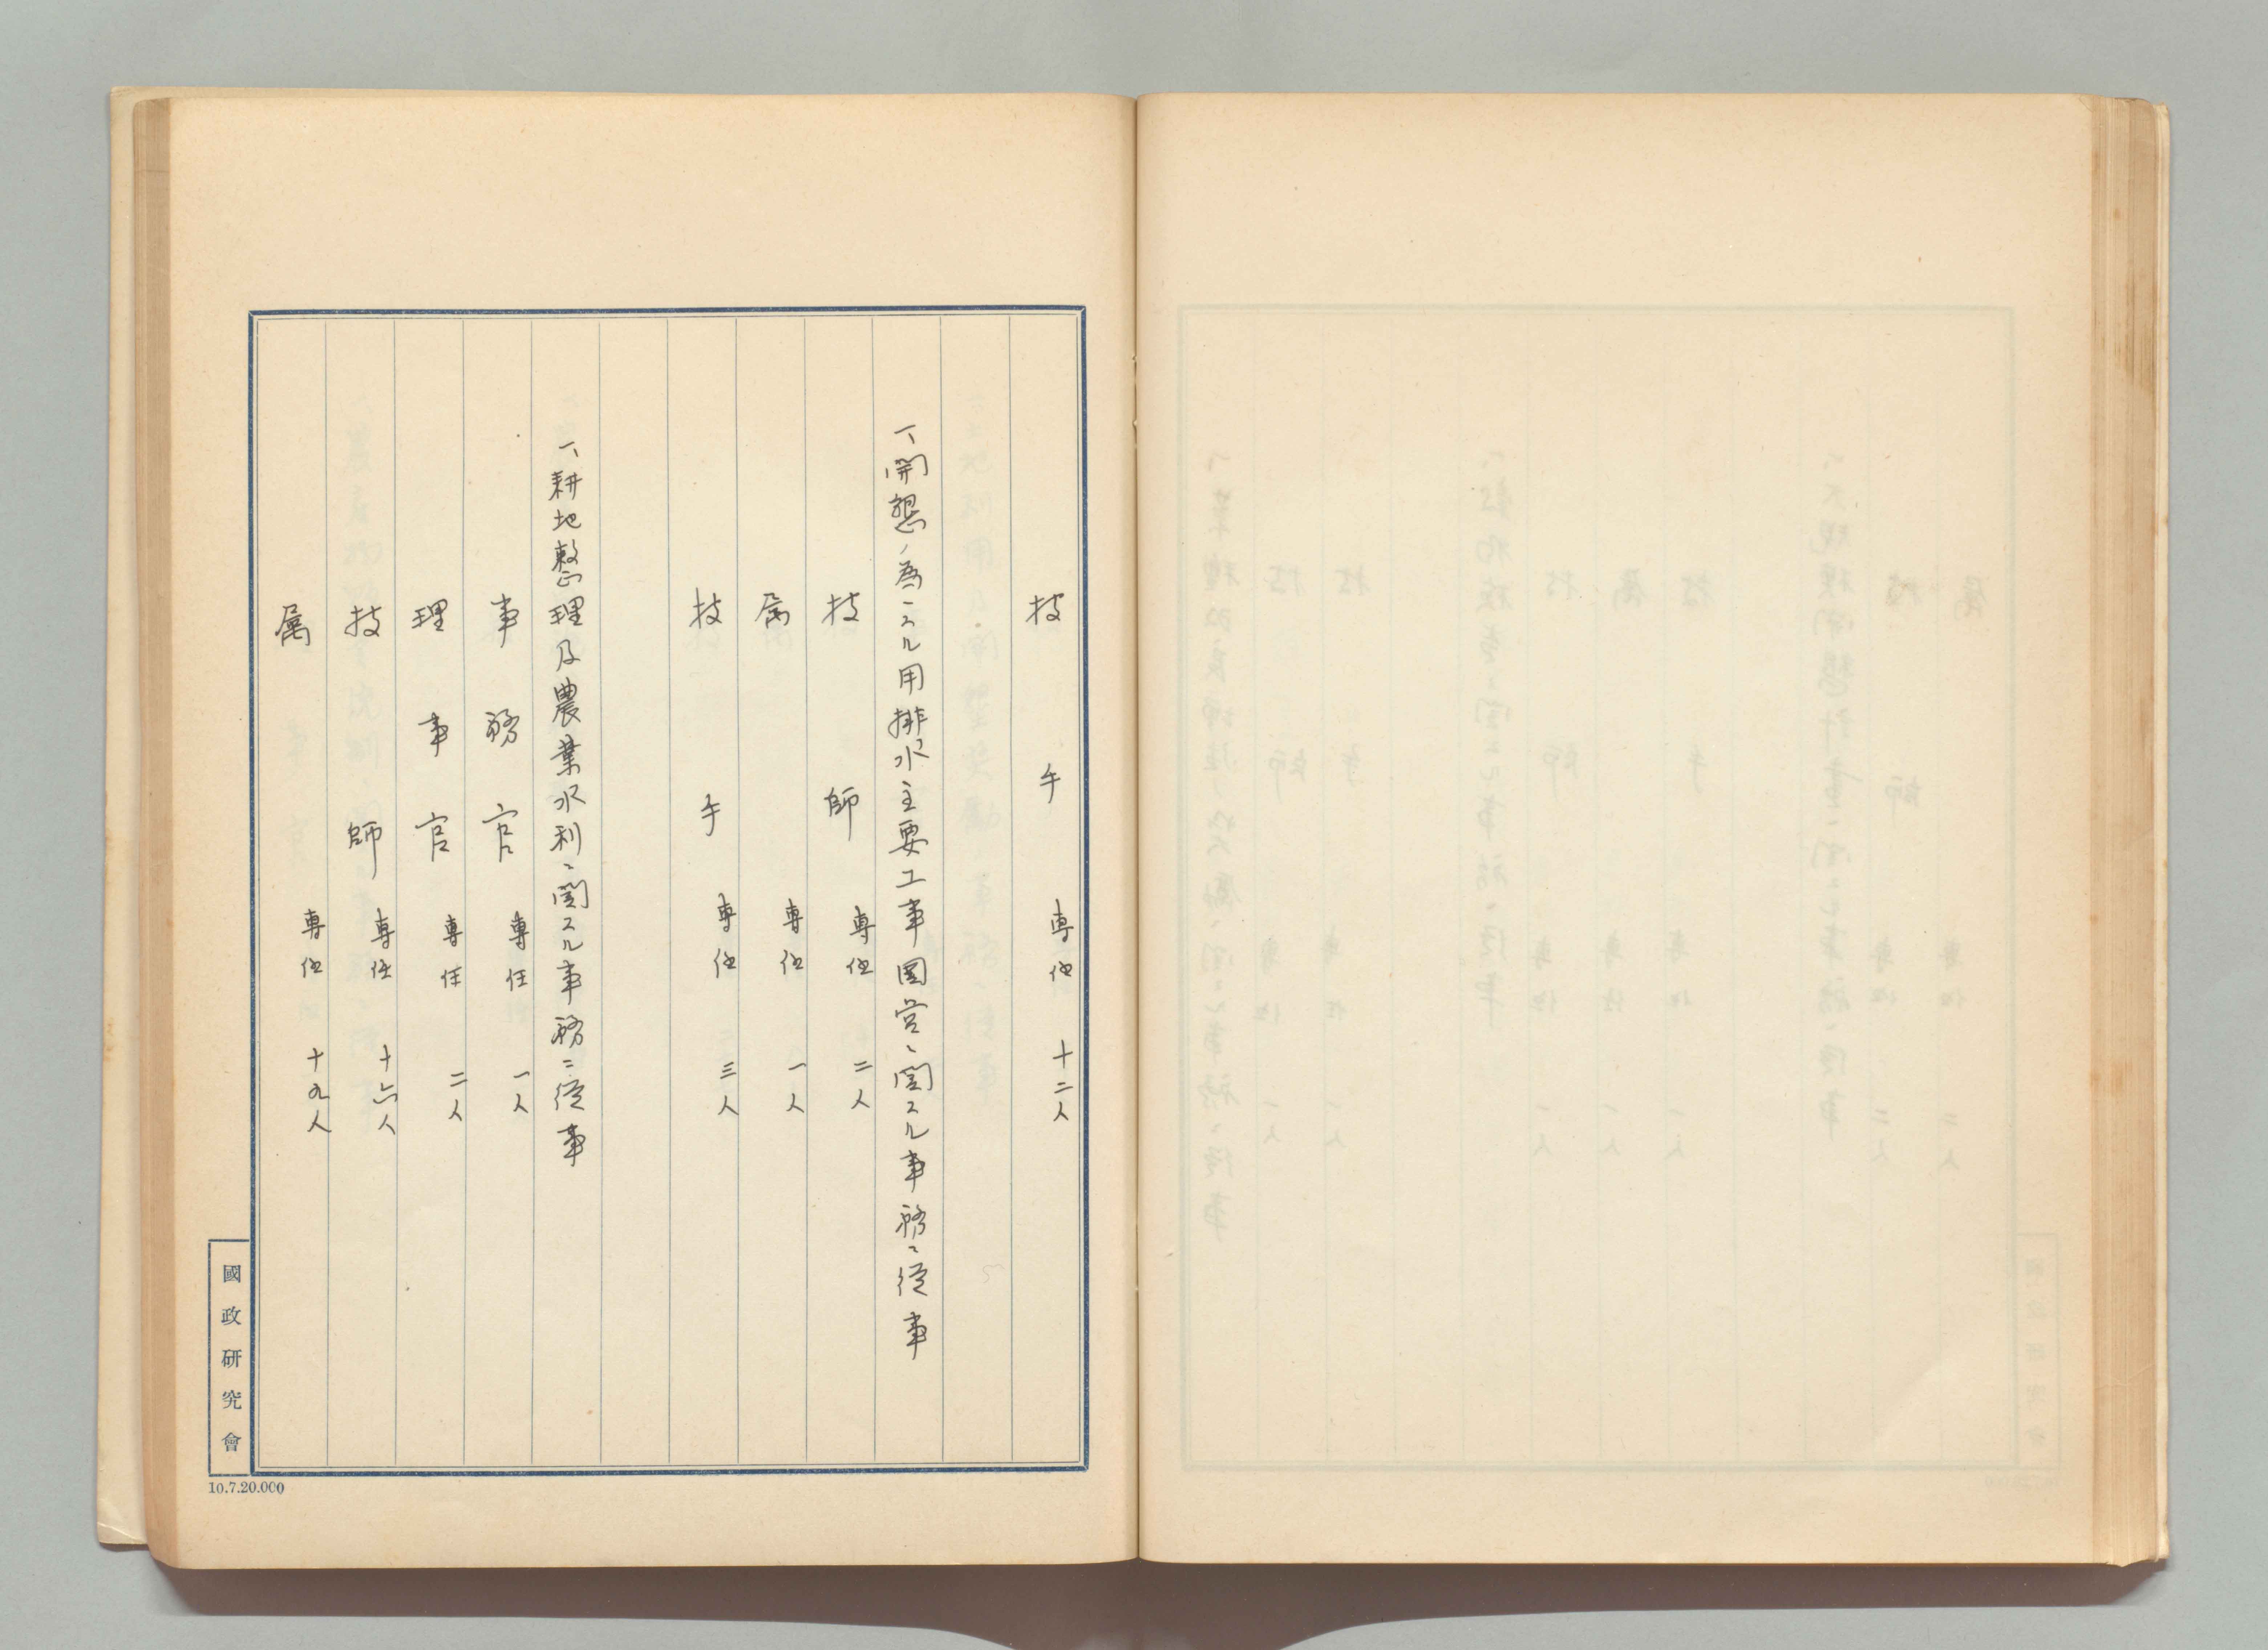 技手 専任 十二人
一、開墾ノ為ニスル用排水主要工事国営ニ関スル事務ニ従事
技師 専任 二人
属 専任 一人
技手 専任 三人
一、耕地整理及農業水利ニ関スル事務ニ従事
事務官 専任 一人
理事官 専任 二人
技師 専任 十六人
属 専任 十九人
國政研究會
10.7.20.000